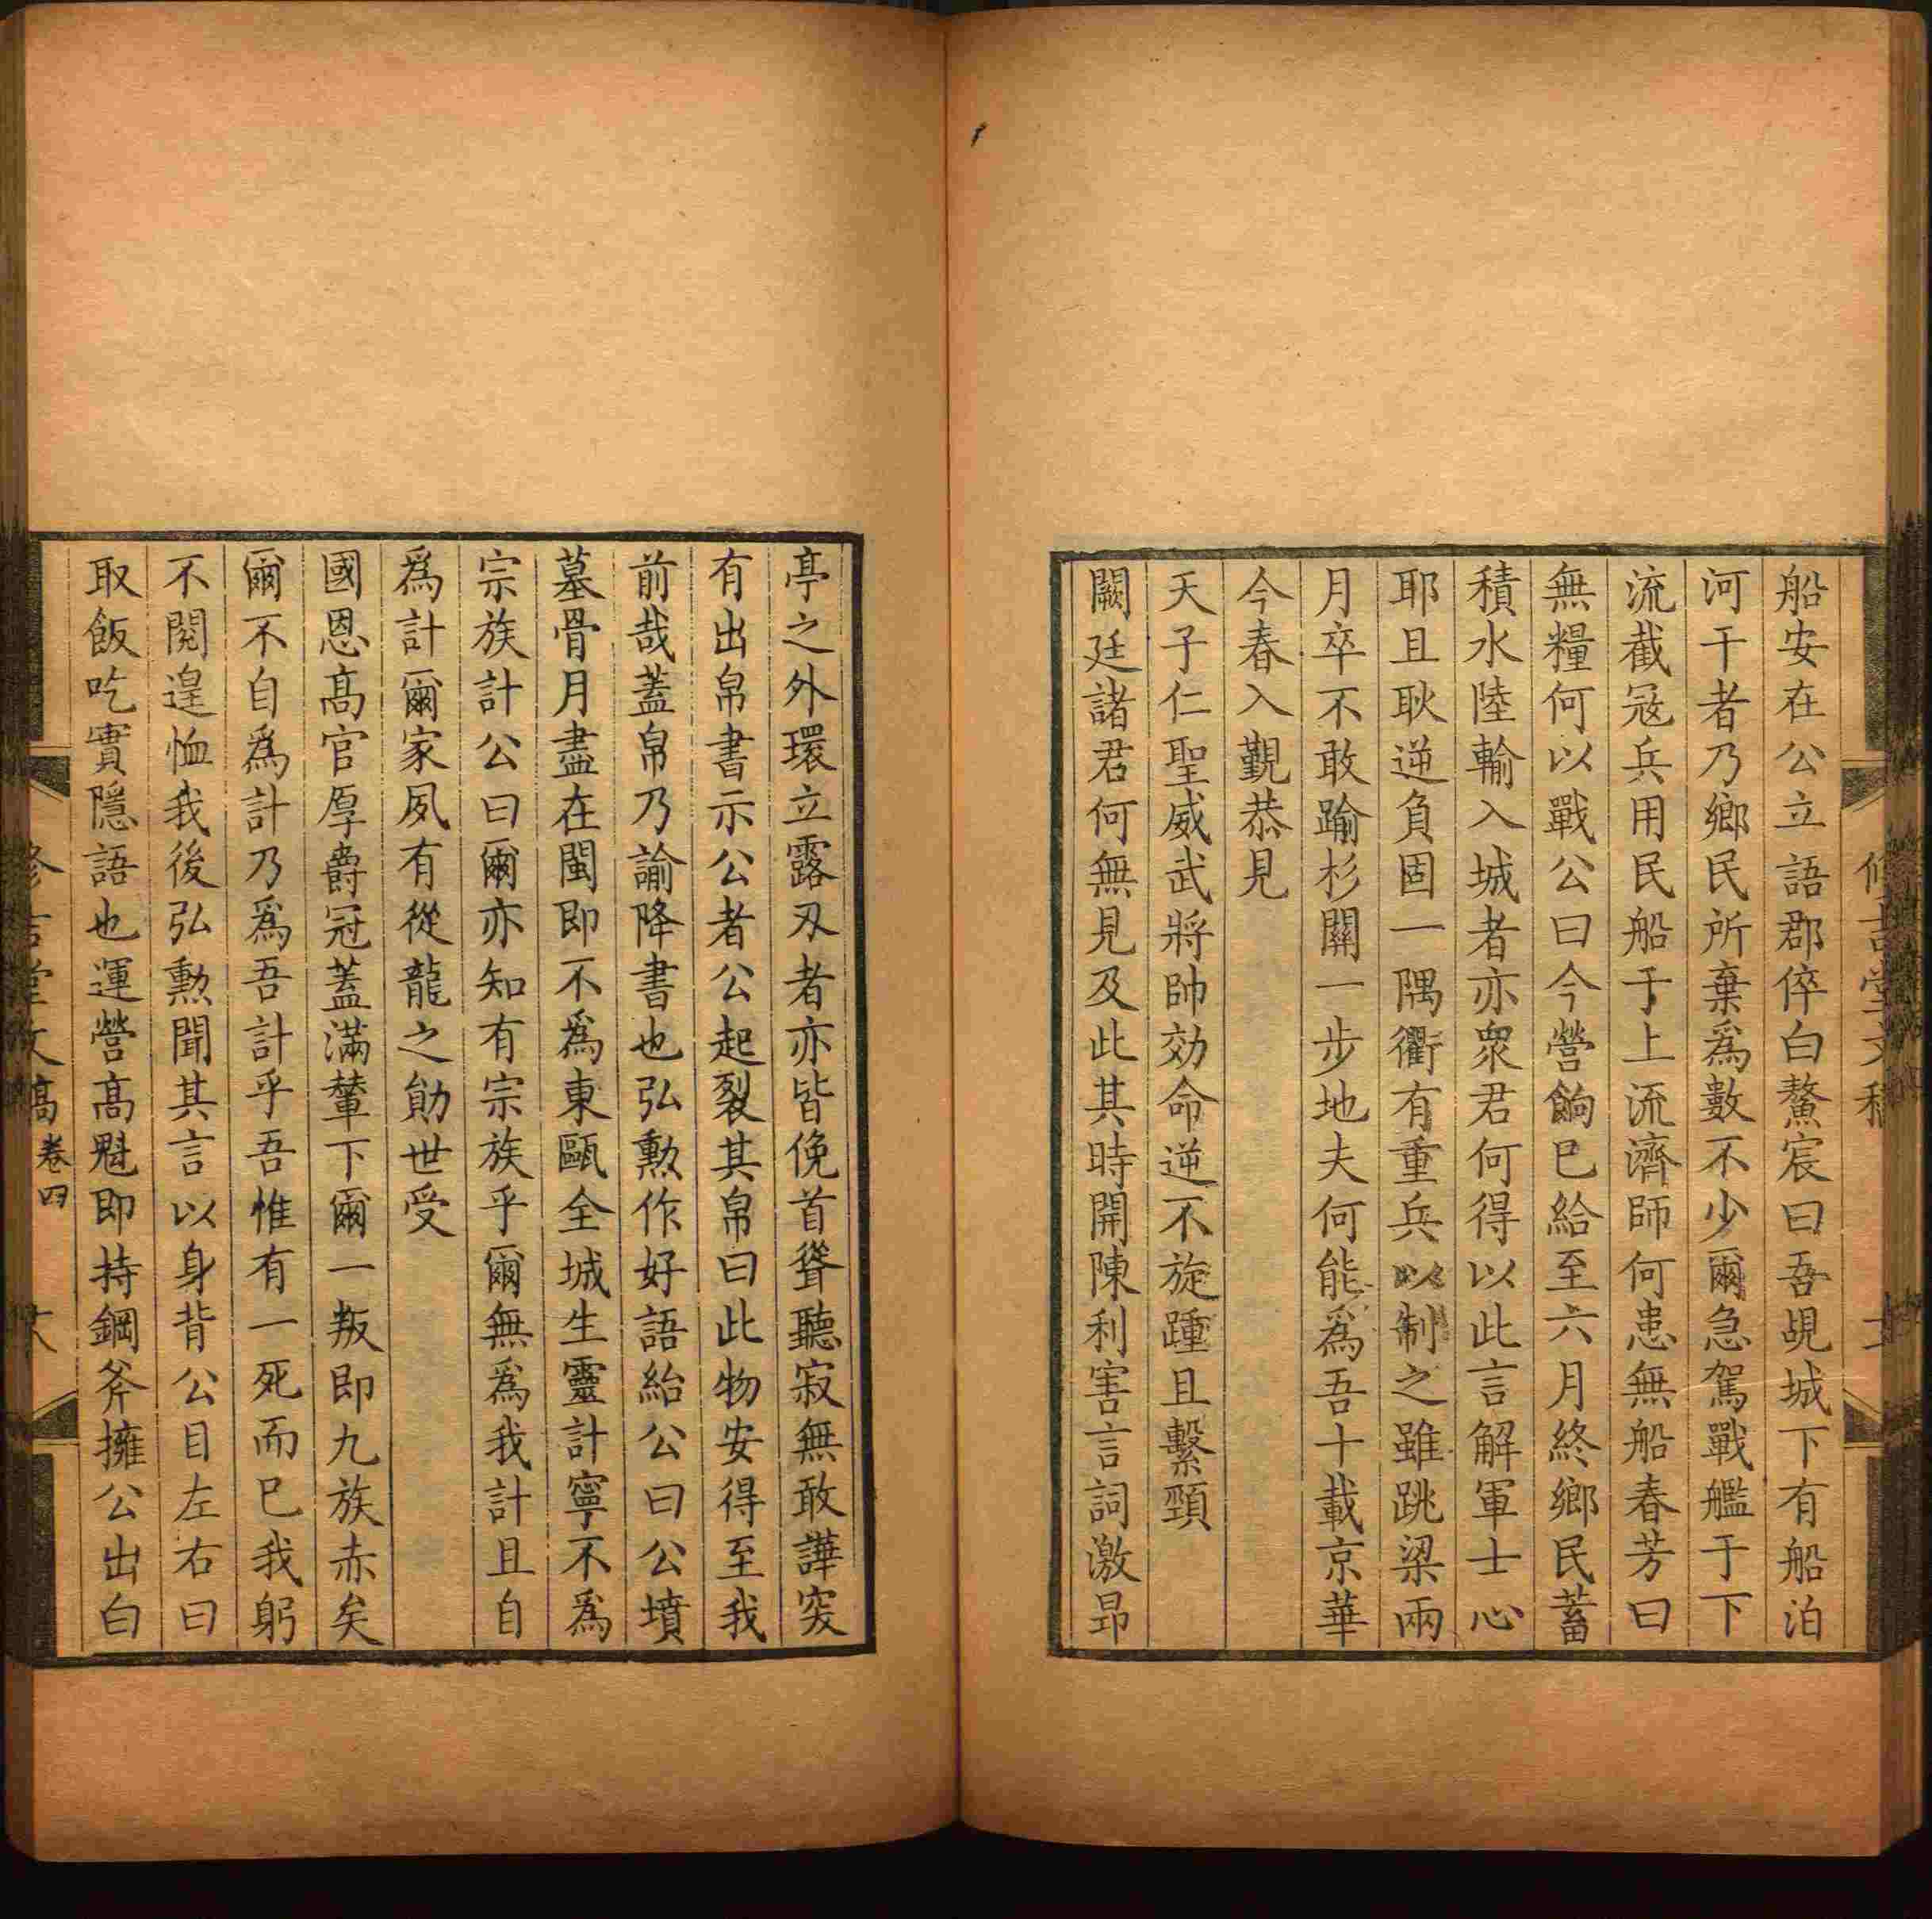 船安在公立語郡倅白鰲宸曰吾覘城下有船泊
河干者乃鄉民所棄爲數不少爾急駕戰艦于下
流截冦兵用民船于上流濟師何患無船春芳曰
無糧何以戰公曰今營餉巳給至六月終鄉民蓄
積水陸輸入城者亦衆君何得以此言解軍士心
耶且耿逆負固一隅衢有重兵以制之雖跳梁兩
月卒不敢踰杉關一步地夫何能爲吾十載京華
今春入覲恭見
天子仁聖威武將帥効命逆不旋踵且繫頸
闕廷諸君何無見及此其時開陳利害言詞激昂
亭之外環立露刃者亦皆俛首聳聽寂無敢譁突
有出帛書示公者公起裂其帛曰此物安得至我
前哉蓋帛乃諭降書也弘勲作好語紿公曰公墳
墓骨月盡在閩即不爲東甌全城生靈計寧不爲
宗族計公曰爾亦知有宗族乎爾無爲我計且自
爲計爾家夙有從龍之勛世受
國恩髙官厚爵冠蓋滿輦下爾一叛即九族赤矣
爾不自爲計乃爲吾計乎吾惟有一死而巳我躬
不閱遑恤我後弘勲聞其言以身背公目左右曰
取飯吃實隱語也運營髙魁即持鋼斧擁公出白
修吉堂文稿 卷四